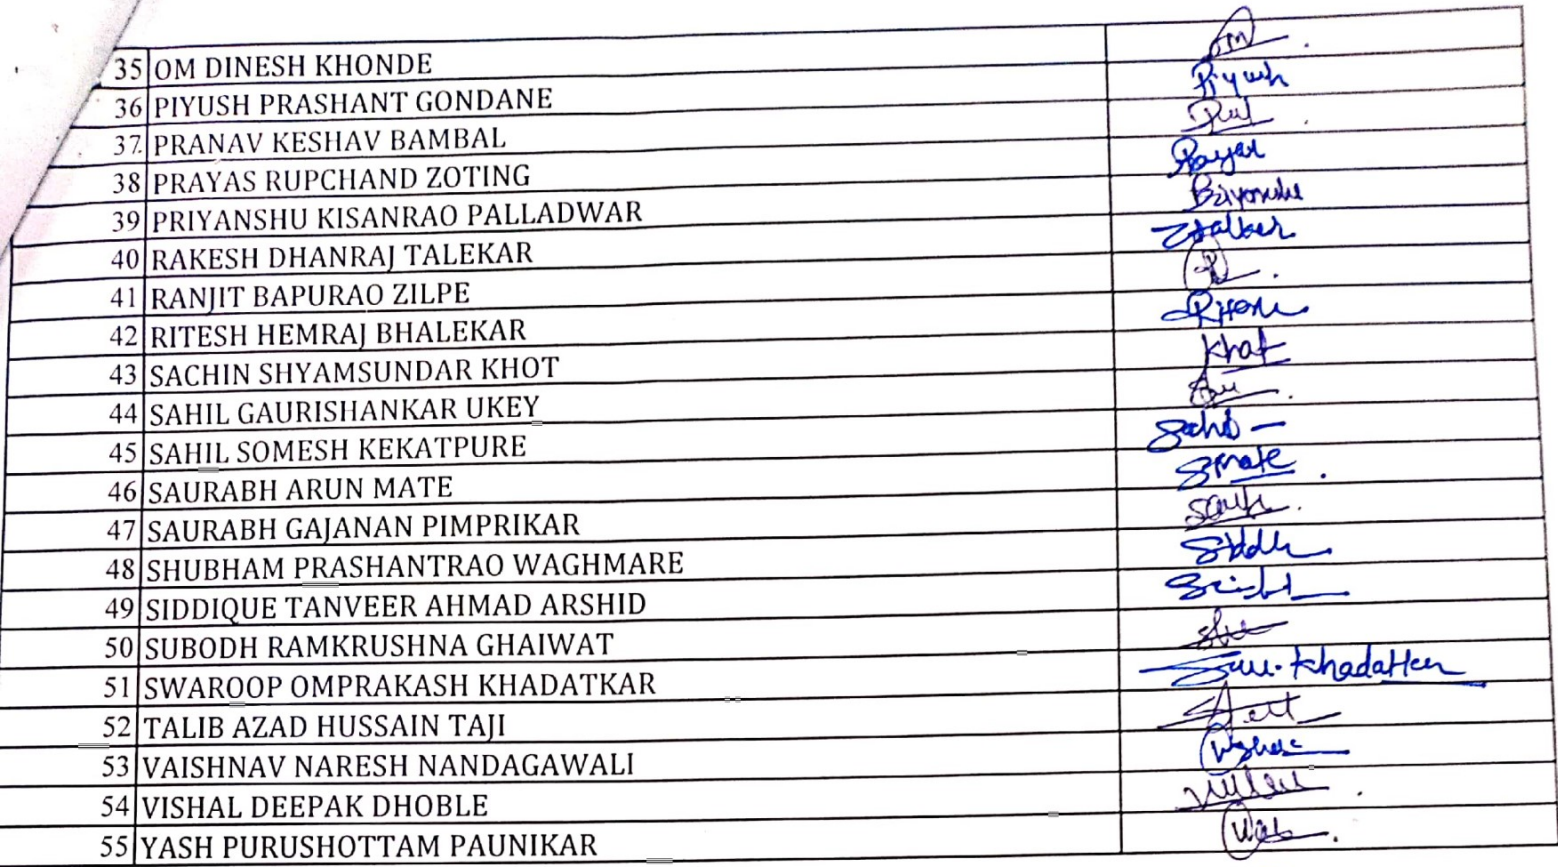 35 OM DINESH KHONDE
36 PIYUSH PRASHANT GONDANE Piyush
37 PRANAV KESHAV BAMBAL
38 PRAYAS RUPCHAND ZOTING
39 PRIYANSHU KISANRAO PALLADWAR
40 RAKESH DHANRAJ TALEKAR
41 RANJIT BAPURAO ZILPE
42 RITESH HEMRAJ BHALEKAR
43 SACHIN SHYAMSUNDAR KHOT Khot
44 SAHIL GAURISHANKAR UKEY
45 SAHIL SOMESH KEKATPURE
46 SAURABH ARUN MATE Smate
47 SAURABH GAJANAN PIMPRIKAR
48 SHUBHAM PRASHANTRAO WAGHMARE
49 SIDDIQUE TANVEER AHMAD ARSHID
50 SUBODH RAMKRUSHNA GHAIWAT
51 SWAROOP OMPRAKASH KHADATKAR
52 TALIB AZAD HUSSAIN TAJI
53 VAISHNAV NARESH NANDAGAWALI
54 VISHAL DEEPAK DHOBLE
55 YASH PURUSHOTTAM PAUNIKAR